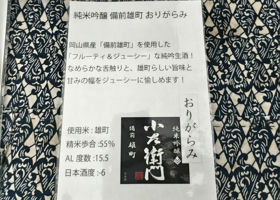 純米吟醸 備前雄町 おりがらみ
岡山県産「備前雄町」を使用した
「フルーティ＆ジューシー」な純吟生酒！
なめらかな舌触りと、雄町らしい旨味と
甘みの幅をジューシーに愉しめます！
おりがらみ
使用米：雄町
精米歩合：55%
AL度数：15.5
日本酒度：-6
純米吟醸
小左衛門
備前
雄町